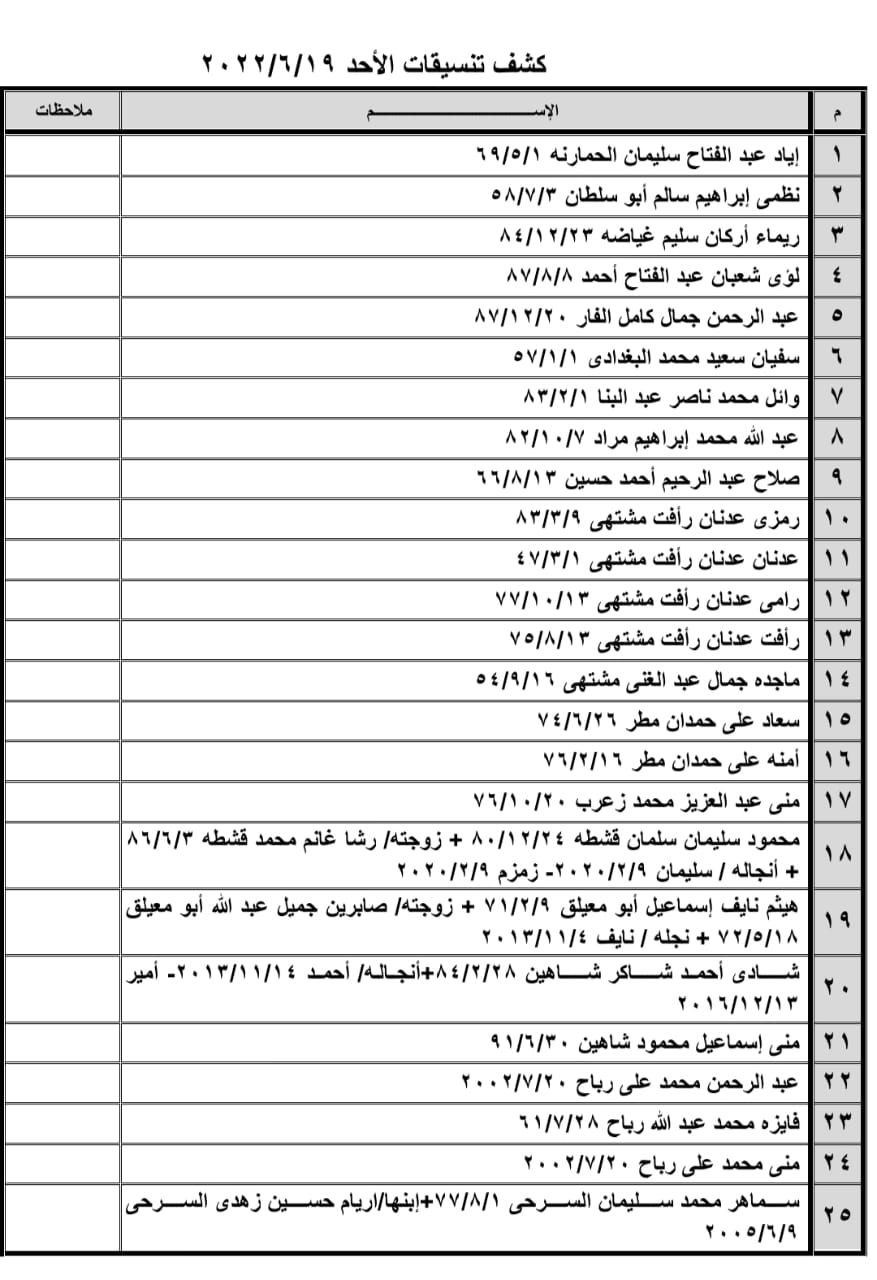 كشف تنسيقات الأحد ٢٠٢٢/٦/١٩
م الإســـــــم ملاحظات
١ إياد عبد الفتاح سليمان الحمارنه ٦٩/٥/١
٢ نظمى إبراهيم سالم أبو سلطان ٥٨/٧/٣
٣ ريماء أركان سليم غياضه ٨٤/١٢/٢٣
٤ لؤى شعبان عبد الفتاح أحمد ٨٧/٨/٨
٥ عبد الرحمن جمال كامل الفار ٨٧/١٢/٢٠
٦ سفيان سعيد محمد البغدادى ٥٧/١/١
٧ وائل محمد ناصر عبد البنا ٨٣/٢/١
٨ عبد الله محمد إبراهيم مراد ٨٢/١٠/٧
٩ صلاح عبد الرحيم أحمد حسين ٦٦/٨/١٣
١٠ رمزى عدنان رأفت مشتهى ٨٣/٣/٩
١١ عدنان عدنان رأفت مشتهى ٤٧/٣/١
١٢ رامى عدنان رأفت مشتهى ٧٧/١٠/١٣
١٣ رأفت عدنان رأفت مشتهى ٧٥/٨/١٣
١٤ ماجده جمال عبد الغنى مشتهى ٥٤/٩/١٦
١٥ سعاد على حمدان مطر ٧٤/٦/٢٦
١٦ أمنه على حمدان مطر ٧٦/٢/١٦
١٧ منى عبد العزيز محمد زعرب ٧٦/١٠/٢٠
١٨ محمود سليمان سلمان قشطه ٨٠/١٢/٢٤ + زوجته/ رشا غانم محمد قشطه ٨٦/٦/٣
+ أنجاله / سليمان ٢٠٢٠/٢/٩- زمزم ٢٠٢٠/٢/٩
١٩ هيثم نايف إسماعيل أبو معيلق ٧١/٢/٩ + زوجته/ صابرين جميل عبد الله أبو معيلق
٧٢/٥/١٨ + نجله / نايف ٢٠١٣/١١/٤
٢٠ شـــادى أحمـد شـــاكر شـــاهين ٨٤/٢/٢٨+أنجـالـه/ أحمـد ٢٠١٣/١١/١٤- أمير
٢٠١٦/١٢/١٣
٢١ منى إسماعيل محمود شاهين ٩١/٦/٣٠
٢٢ عبد الرحمن محمد على رباح ٢٠٠٢/٧/٢٠
٢٣ فايزه محمد عبد الله رباح ٦١/٧/٢٨
٢٤ منى محمد على رباح ٢٠٠٢/٧/٢٠
٢٥ ســـماهر محمد ســـليمان الســـرحى ٧٧/٨/١+إبنها/اريام حســـين زهدى الســـرحى
٢٠٠٥/٦/٩